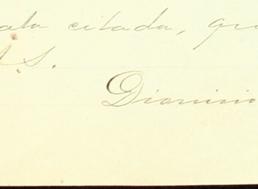 ala citada, qu
A.S.
Dionisio